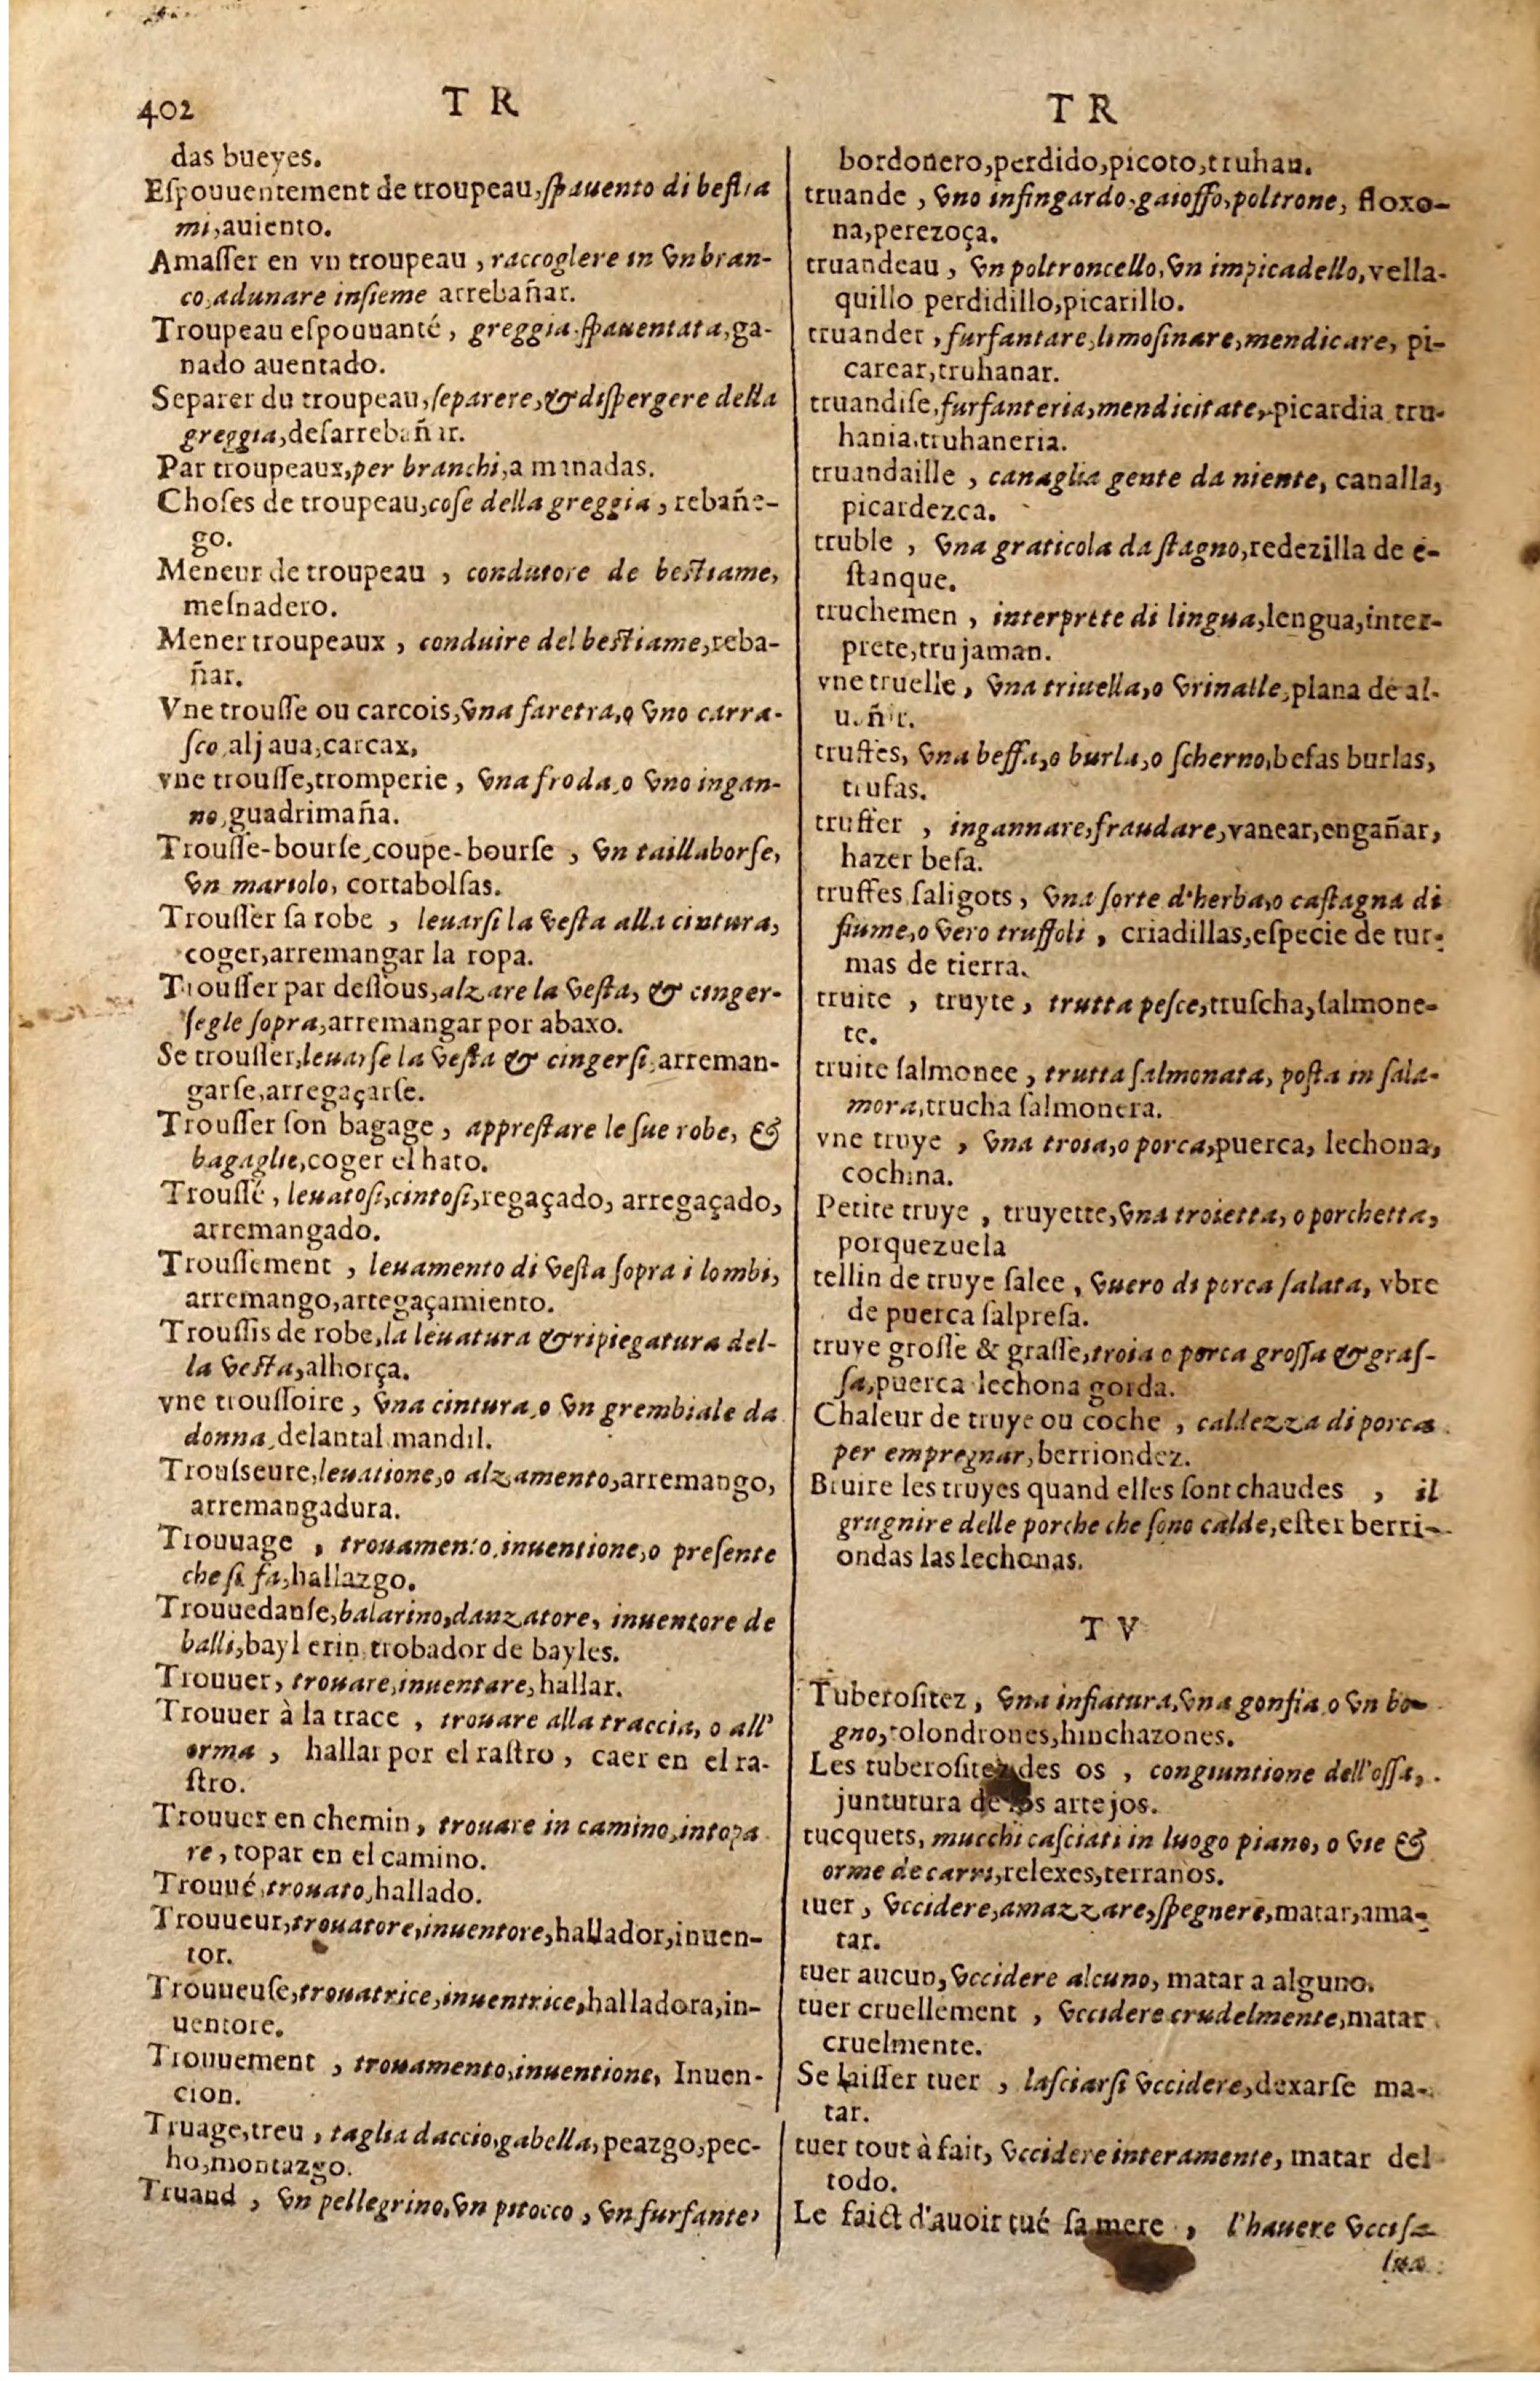 402
T R
das bueyes.
Eſpouuentement de troupeau, ſpauento di beſtia
mi, auiento.
Amaſſer en vn troupeau, raccoglere in vn bran-
co, adunare inſieme arrebañar.
Troupeau eſpouuanté, greggia ſpauentata, ga-
nado auentado.
Separer du troupeau, ſeparere, & diſpergere della
greggia, deſarrebañar.
Par troupeaux, per branchi, a manadas.
Choſes de troupeau, coſe della greggia, rebañe-
go.
Meneur de troupeau, condutore de beſtiame,
meſnadero.
Mener troupeaux, conduire del beſtiame, reba-
ñar.
Vne trouſſe ou carcois, vna faretra, o vno carra-
ſco, aljaua, carcax,
vne trouſſe, tromperie, vna froda, o vno ingan-
no, guadrimaña.
Trouſſe-bourſe, coupe-bourſe, vn taillaborſe,
vn mariolo, cortabolſas.
Trouſſer ſa robe, leuarſi la veſta alla cintura,
coger, arremangar la ropa.
Trouſſer par deſſous, alzare la veſta, & cinger-
ſegle ſopra, arremangar por abaxo.
Se trouſſer, leuarſe la veſta & cingerſi, arreman-
garſe, arregaçarſe.
Trouſſer ſon bagage, appreſtare le ſue robe, &
bagaglie, coger el hato.
Trouſſé, leuatoſi, cintoſi, regaçado, arregaçado,
arremangado.
Trouſſement, leuamento di veſta ſopra i lombi,
arremango, arregaçamiento.
Trouſſis de robe, la leuatura & ripiegatura del-
la veſta, alhorça.
vne trouſſoire, vna cintura, o vn grembiale da
donna, delantal mandil.
Trouſseure, leuatione, o alzamento, arremango,
arremangadura.
Trouuage, trouamento, inuentione, o preſente
che ſi fa, hallazgo.
Trouuedanſe, balarino, danzatore, inuentore de
balli, bayl erin trobador de bayles.
Trouuer, trouare, inuentare, hallar.
Trouuer à la trace, trouare alla traccia, o all'
orma, hallar por el raſtro, caer en el ra-
ſtro.
Trouuer en chemin, trouare in camino, intopa
re, topar en el camino.
Trouué, trouato, hallado.
Trouueur, trouatore, inuentore, hallador, inuen-
tor.
Trouueuſe, trouatrice, inuentrice, halladora, in-
uentore.
Trouuement, trouamento, inuentione, Inuen-
cion.
Truage, treu, taglia daccio, gabella, peazgo, pec-
ho, montazgo.
Truand, vn pellegrino, vn pitocco, vn furfante,
T R
bordonero, perdido, picoto, truhan.
truande, vno infingardo, gaioffo, poltrone, floxo-
na, perezoça.
truandeau, vn poltroncello, vn impicadello, vella-
quillo perdidillo, picarillo.
truander, furfantare, limoſinare, mendicare, pi-
carear, truhanar.
truandiſe, furfanteria, mendicitate, picardia tru-
hania, truhaneria.
truandaille, canaglia gente da niente, canalla,
picardezca.
truble, vna graticola da ſtagno, redezilla de e-
ſtanque.
truchemen, interprete di lingua, lengua, inter-
prete, trujaman.
vne truelle, vna triuella, o vrinalle, plana de al-
truffes, vna beffa, o burla, o ſcherno, befas burlas,
trufas.
truffer, ingannare, fraudare, vanear, engañar,
hazer befa.
truffes ſaligots, vna ſorte d'herba, o caſtagna di
fiume, o vero truffoli, criadillas, eſpecie de tur-
mas de tierra.
truite, truyte, trutta peſce, truſcha, ſalmone-
te.
truite ſalmonee, trutta ſalmonata, poſta in ſala-
mora, trucha ſalmonera.
vne truye, vna troia, o porca, puerca, lechona,
cochina.
Petite truye, truyette, vna troietta, o porchetta,
porquezuela
tellin de truye ſalee, vuero di porca ſalata, vbre
de puerca ſalpreſa.
truye groſſe & graſſe, troia o porca groſſa & graſ-
ſa, puerca lechona gorda.
Chaleur de truye ou coche, caldezza di porca
per empregnar, berriondez.
Bruire les truyes quand elles ſont chaudes, il
grugnire delle porche che ſono calde, eſter berri-
ondas las lechonas.
T V
Tuberoſitez, vna infiatura, vna gonfia o vn bo-
gno, tolondrones, hinchazones.
Les tuberoſitez des os, congiuntione dell'oſſa,
juntutura de los artejos.
tucquets, mucchi caſciati in luogo piano, o vie &
orme de carri, relexes, terranos.
tuer, vccidere, amazzare, ſpegnere, matar, ama-
tar.
tuer aucun, vccidere alcuno, matar a alguno.
tuer cruellement, vccidere crudelmente, matar
cruelmente.
Se laiſſer tuer, laſciarſi vccidere, dexarſe ma-
tar.
tuer tout à fait, vccidere interamente, matar del
todo.
Le faict d'auoir tué ſa mere, l'hauere vcciſa
ſua